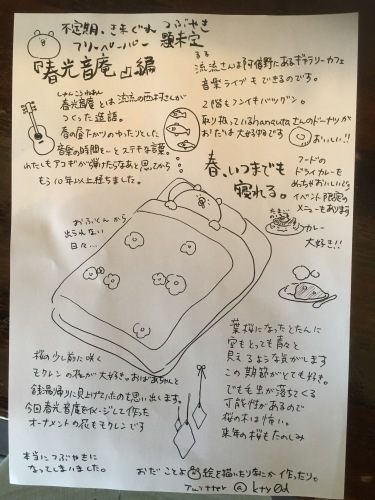 不定期、きまぐれ つぶやき
フリーペーパー 題未定
『春光音庵』編
しゅんこうねあん
春光音庵とは流流の西村さんが
つくった造語。
春の昼下がりのゆったりとした
音楽の時間を…とステキな言葉
わたしもアコギが弾けたらなあと思ってから
もう10年以上経ちました。
るる
流流さんは阿倍野にあるギャラリーカフェ
音楽ライブもできるのです。
2階もフンイキバツグン。
取り扱っているhanautaさんのドーナツが
おだは大好物です
おいしい!!
フードの
ドライカレーも
めっちゃおいしいです
イベント限定の
メニューもあります
たまご
カレー
大好き!!
春、いつまでも
寝れる。
おふとんから
出られない
日々…
桜の少し前に咲く
モクレンの花が大好き。おばあちゃんと
銭湯帰りに見上げたのも思い出します。
今回春光音庵をイメージして作った
オーナメントの花もモクレンです
葉桜になったとたんに
空もとっても青々と
見えるような気がします
この期節がとても好き。
でも毛虫が落ちてくる
可能性があるので
桜の木は怖い。
来年の桜もたのしみ
本当につぶやきに
なってしまいました。
おだことよ 絵を描いたりなにか作ったり。
Twitter @